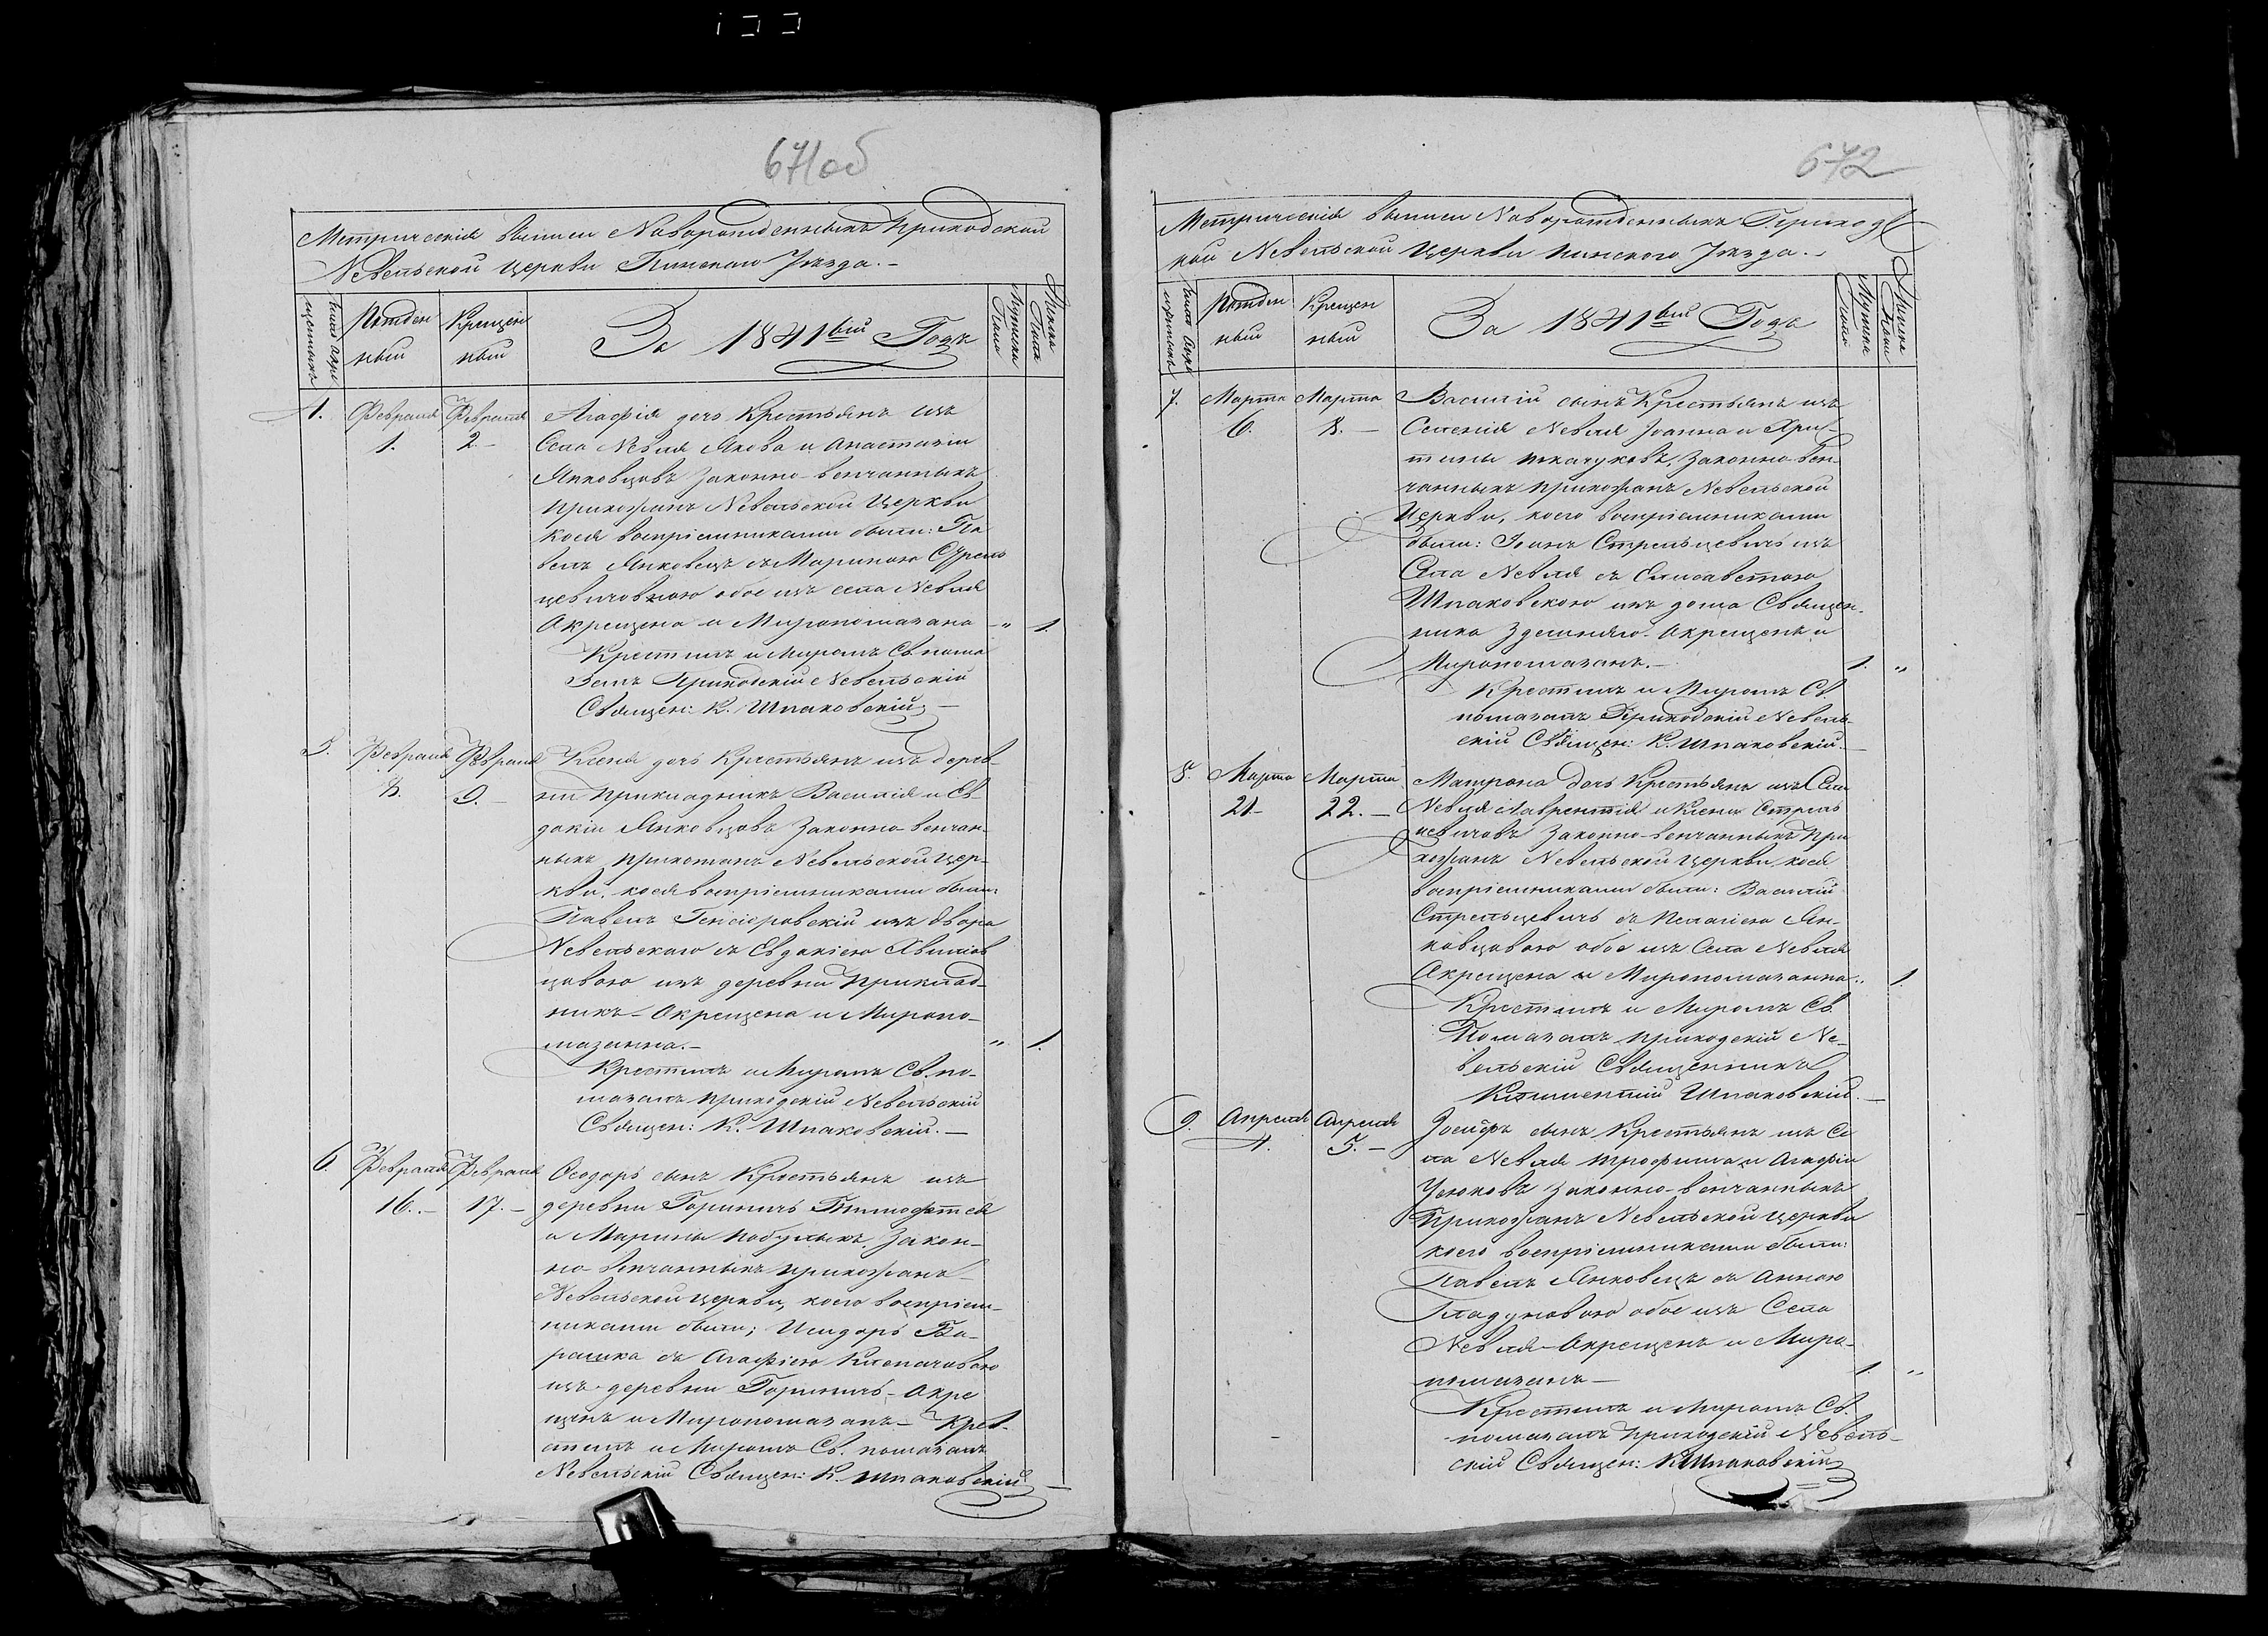 671об
Метрическія выписи Новорожденныхъ Приходской
Невельской Церкви Пинскаго Уѣзда.-
Рожден
ный
Крещен
ный
За 1841вый Годъ
Мужеска
Пола
Женска
Пола
4. Февраля 1. Февраля 2.-
Агафія дочь Крестьянъ изъ
Села Невля Якова и Анастазіи
Янковцовъ законно-венчанныхъ
прихожанъ Невельской Церкви
коея воспріемниками были: Па
велъ Янковецъ съ Мариною Стрель
цевичовною обое изъ села Невля
Акрещена и Миропомазана - " 1.
Крестилъ и Миромъ Св. пома
залъ Приходскій Невельскій
Священ: К. Шпаковскій -
5. Февраля 8. Февраля 9.-
Ксенія дочь Крестьянъ изъ дерев-
ни Прикладникъ Василія и Ев-
докіи Янковцовъ Законно-венчан-
ныхъ прихожанъ Невельской Цер-
кви, коея воспріемниками были:
Павелъ изъ двора
Невельскаго съ Евдокіею
цовою изъ деревни Приклад-
никъ - Акрещена и Миропо-
мазанна.- " 1.
Крестилъ и Миромъ Св. по-
мазалъ приходскій Невельскій
Священ: К. Шпаковскій.-
6. Февраля 16.- Февраля 17.-
Ѳеодоръ сынъ Крестьянъ изъ
деревни Горничъ Тимофтея
и Марины Закон-
но-венчанныхъ прихожанъ
Невельской церкви, коего воспріем-
никами были; Исидоръ Ба-
рашка съ Агафіею
изъ деревни Горничъ - Акре
щенъ и Миропомазанъ - Крес-
стилъ и Миромъ Св. помазалъ
Невельскій Священ: К. Шпаковскій -
672
Метрическія выписи Новорожденныхъ Приходс
кой Невельской Церкви Пинского Уѣзда.-
Рожден
ный
Крещен
ный
За 1841вый Годъ
Мужеска
Пола
Женска
Пола
7. Марта 6. Марта 8.-
Василій сынъ Крестьянъ изъ
Селенія Невля Іоанна и Хрис-
тины Ткачуковъ, Законно-вен-
чанныхъ прихожанъ Невельской
Церкви, коего воспріемниками
были: Іоанъ Стрельцевичъ изъ
Села Невля съ Елисаветою
Шпаковскою изъ дома Священ-
ника Здешняго. Акрещенъ и
Миропомазанъ.- 1. "
Крестилъ и Миромъ Св.
помазалъ Приходскій Невель-
скій Священ: К. Шпаковскій.-
8. Марта 21- Марта 22.-
Матрона дочь Крестьянъ изъ Села
Невля Лаврентія и Ксеніи Стрель
цевичовъ Законно-венчанныхъ При
хожанъ Невельской Церкви, коея
воспріемниками были: Василій
Стрельцевичъ съ Пелагіею Ян-
ковцовою обое изъ Села Невля
Акрещена и Миропомазанна " 1.
Крестилъ и Миромъ Св.
Помазалъ приходскій Не-
вельскій Священникъ
Климентій Шпаковскій.-
9. Апреля 4. Апреля 5.-
Іосифъ сынъ Крестьянъ изъ Се
ла Невля Трофима и Агафіи
Законно-венчанныхъ
Прихожанъ Невельской церкви
коего воспріемниками были:
Павелъ Янковецъ съ Анною
обое изъ Села
Невля - Акрещенъ и Миро-
помазанъ - 1. "
Крестилъ и Миромъ Св.
помазалъ приходскій Невель-
скій Священ: К Шпаковскій